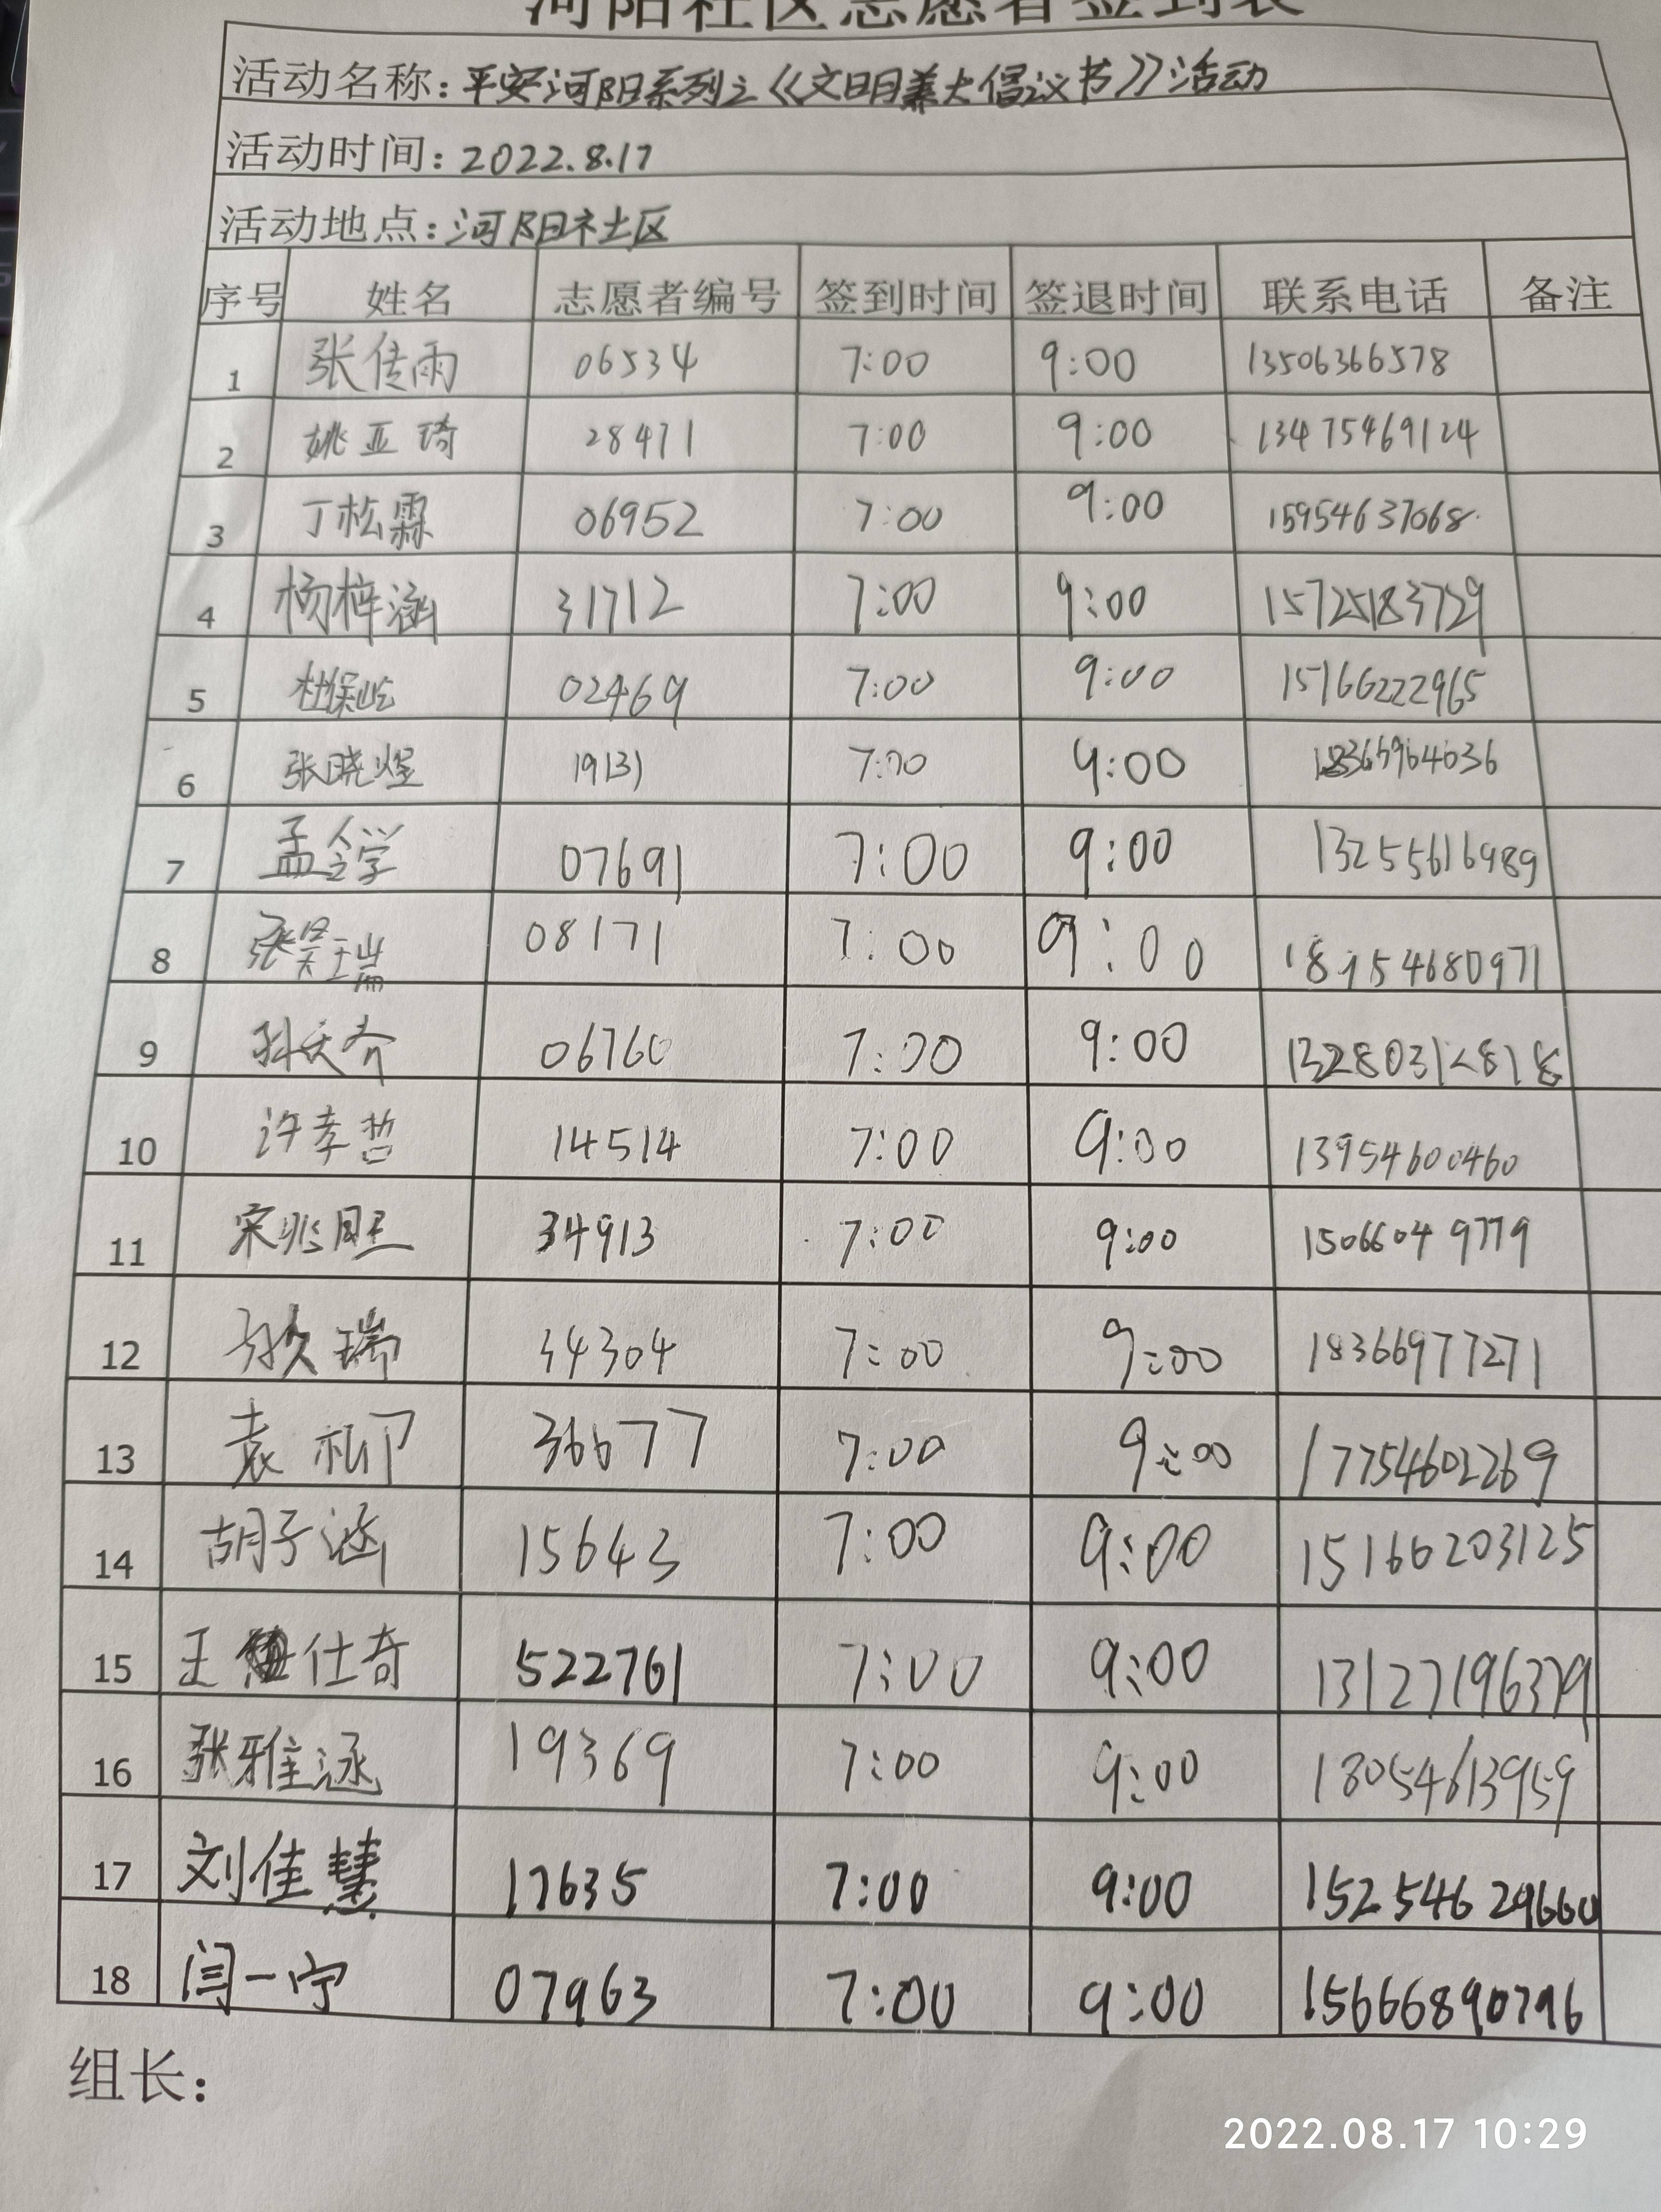 河阳社区志愿者签到表
活动名称：平安河阳系列之《文明养犬倡议书》活动
活动时间：2022.8.17
活动地点：河阳社区
序号 姓名 志愿者编号 签到时间 签退时间 联系电话 备注
1 张传雨 06534 7:00 9:00 13506366578
2 姚亚琦 28471 7:00 9:00 13475469124
3 丁松霖 06952 7:00 9:00 15954637068
4 杨梓涵 31712 7:00 9:00 15725183729
5 杜保屹 02469 7:00 9:00 15166222965
6 张晓煜 19131 7:00 9:00
7 孟令学 07691 7:00 9:00 13255616989
8 张昊瑞 08171 7:00 9:00 18154680971
9 孙庆乔 06760 7:00 9:00 13280312818
10 许孝哲 14514 7:00 9:00 13954600460
11 宋兆 34913 7:00 9:00 15066049779
12 瑞 34304 7:00 9:00 18366977271
13 袁 36677 7:00 9:00 17754602269
14 胡子涵 15643 7:00 9:00 15166203125
15 王仕奇 522761 7:00 9:00 13127196379
16 张雅涵 19369 7:00 9:00 18054613959
17 刘佳慧 17635 7:00 9:00 15254629660
18 闫一宁 07963 7:00 9:00 15666890796
组长：
2022.08.17 10:29